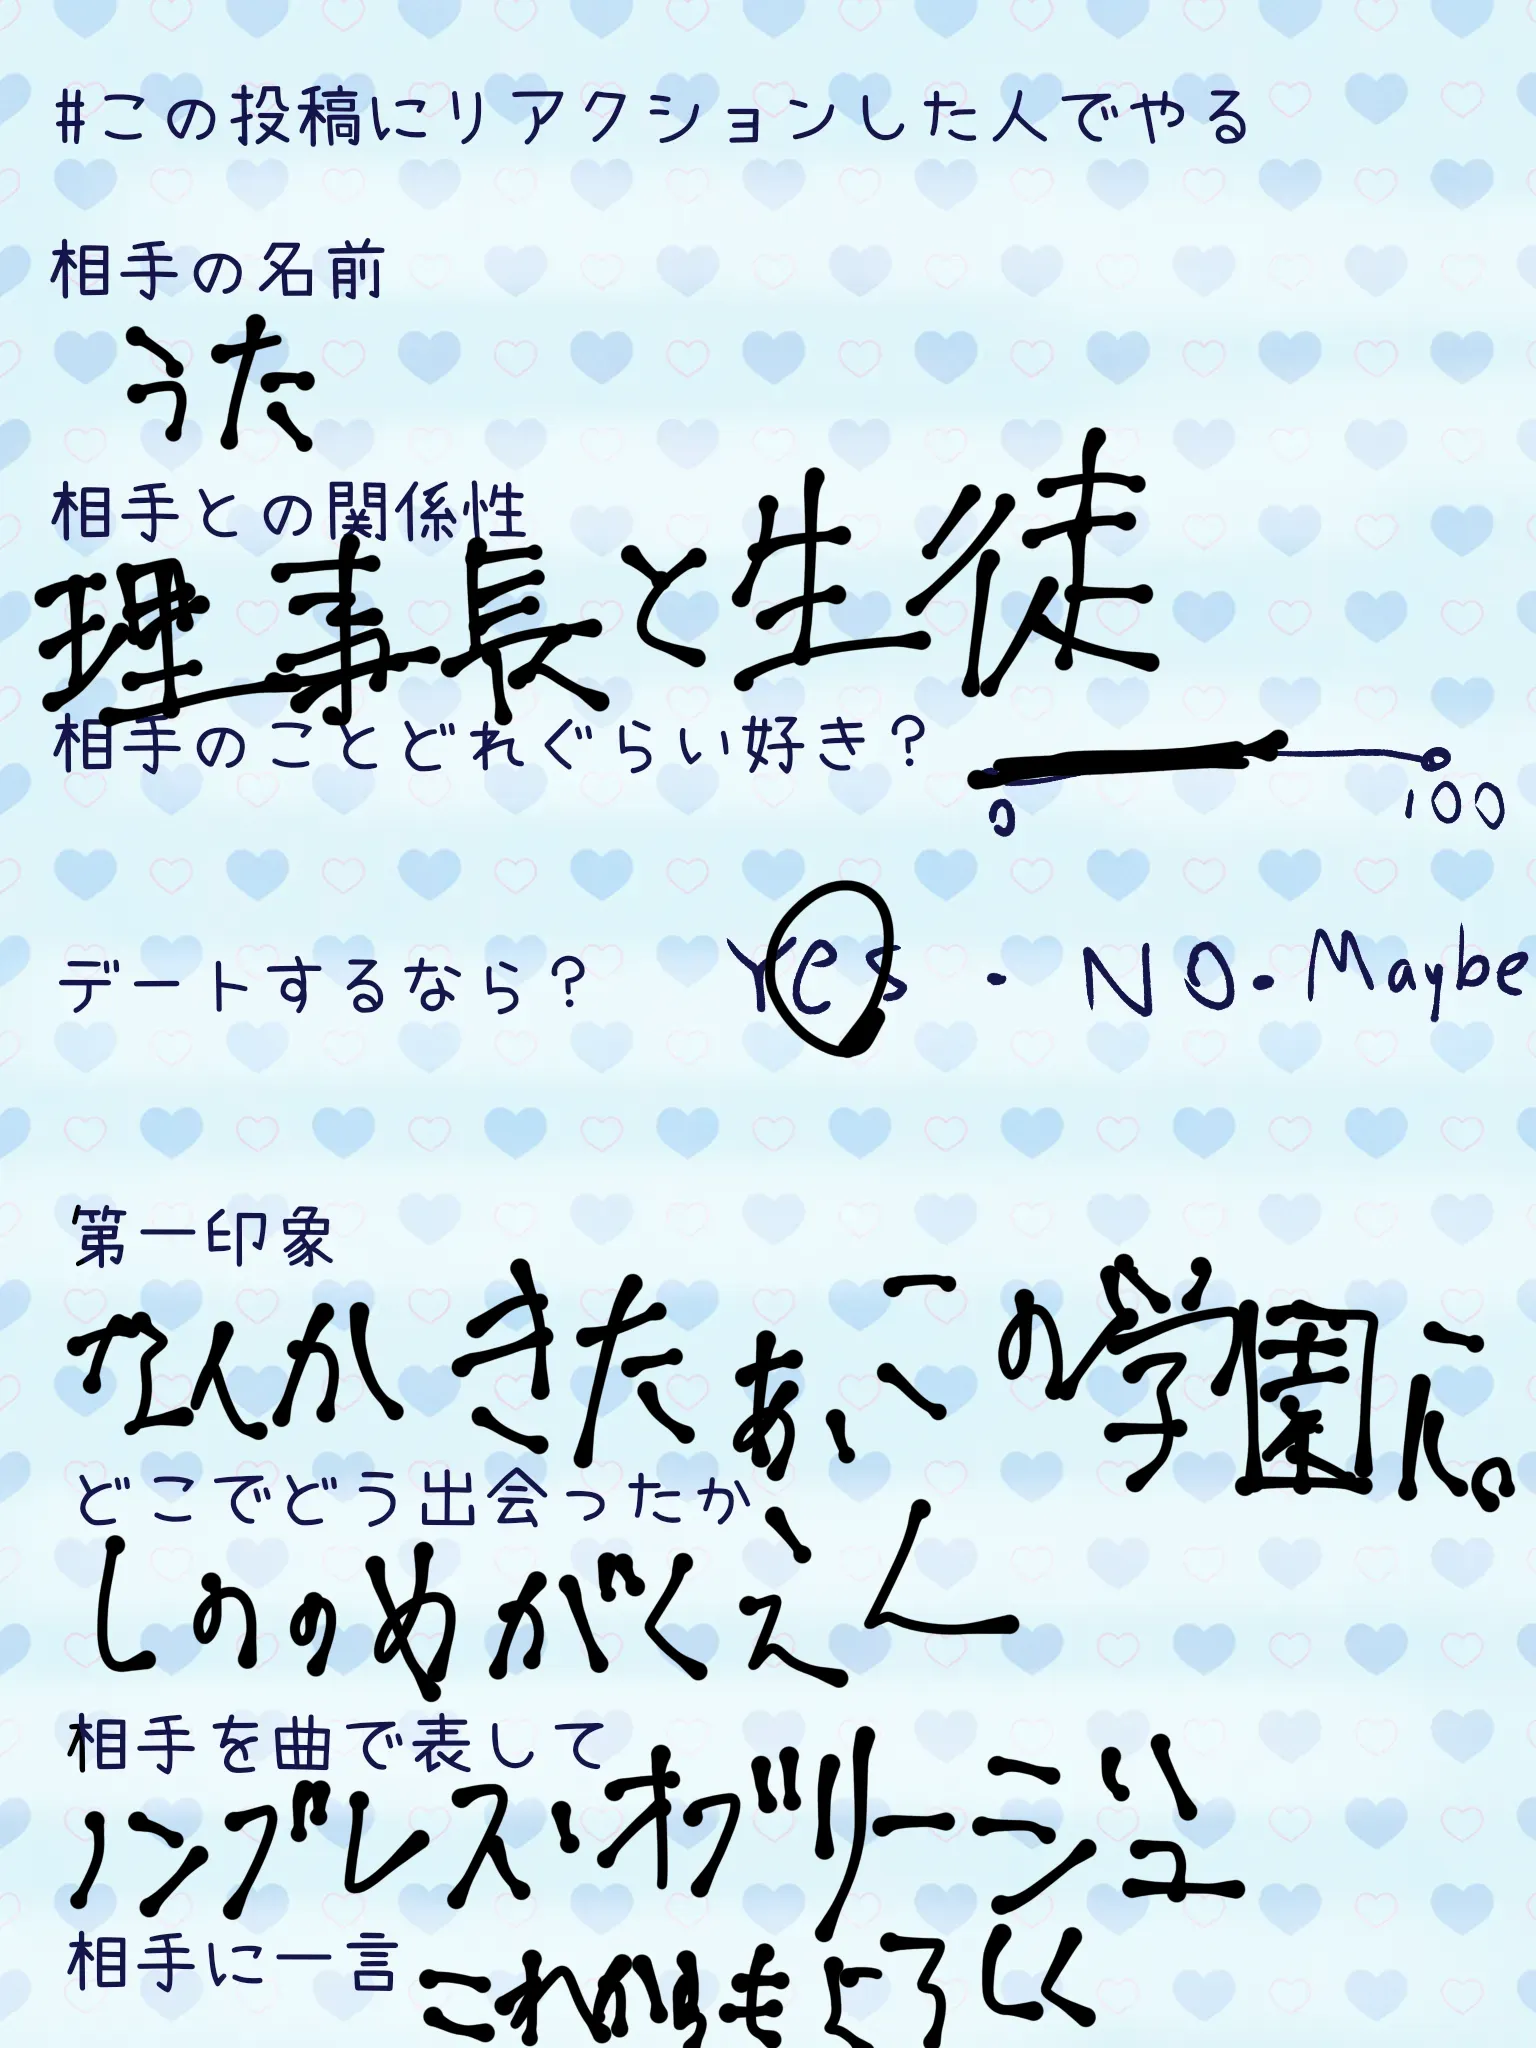 #この投稿にリアクションした人でやる
相手の名前
うた
相手との関係性
理事長と生徒
相手のことどれぐらい好き？
0 100
デートするなら？ Yes・NO・Maybe
第一印象
なんかきたぁ、この学園に。
どこでどう出会ったか
しののめがくえん
相手を曲で表して
ノンブレス・オブリージュ
相手に一言
これからもよろしく